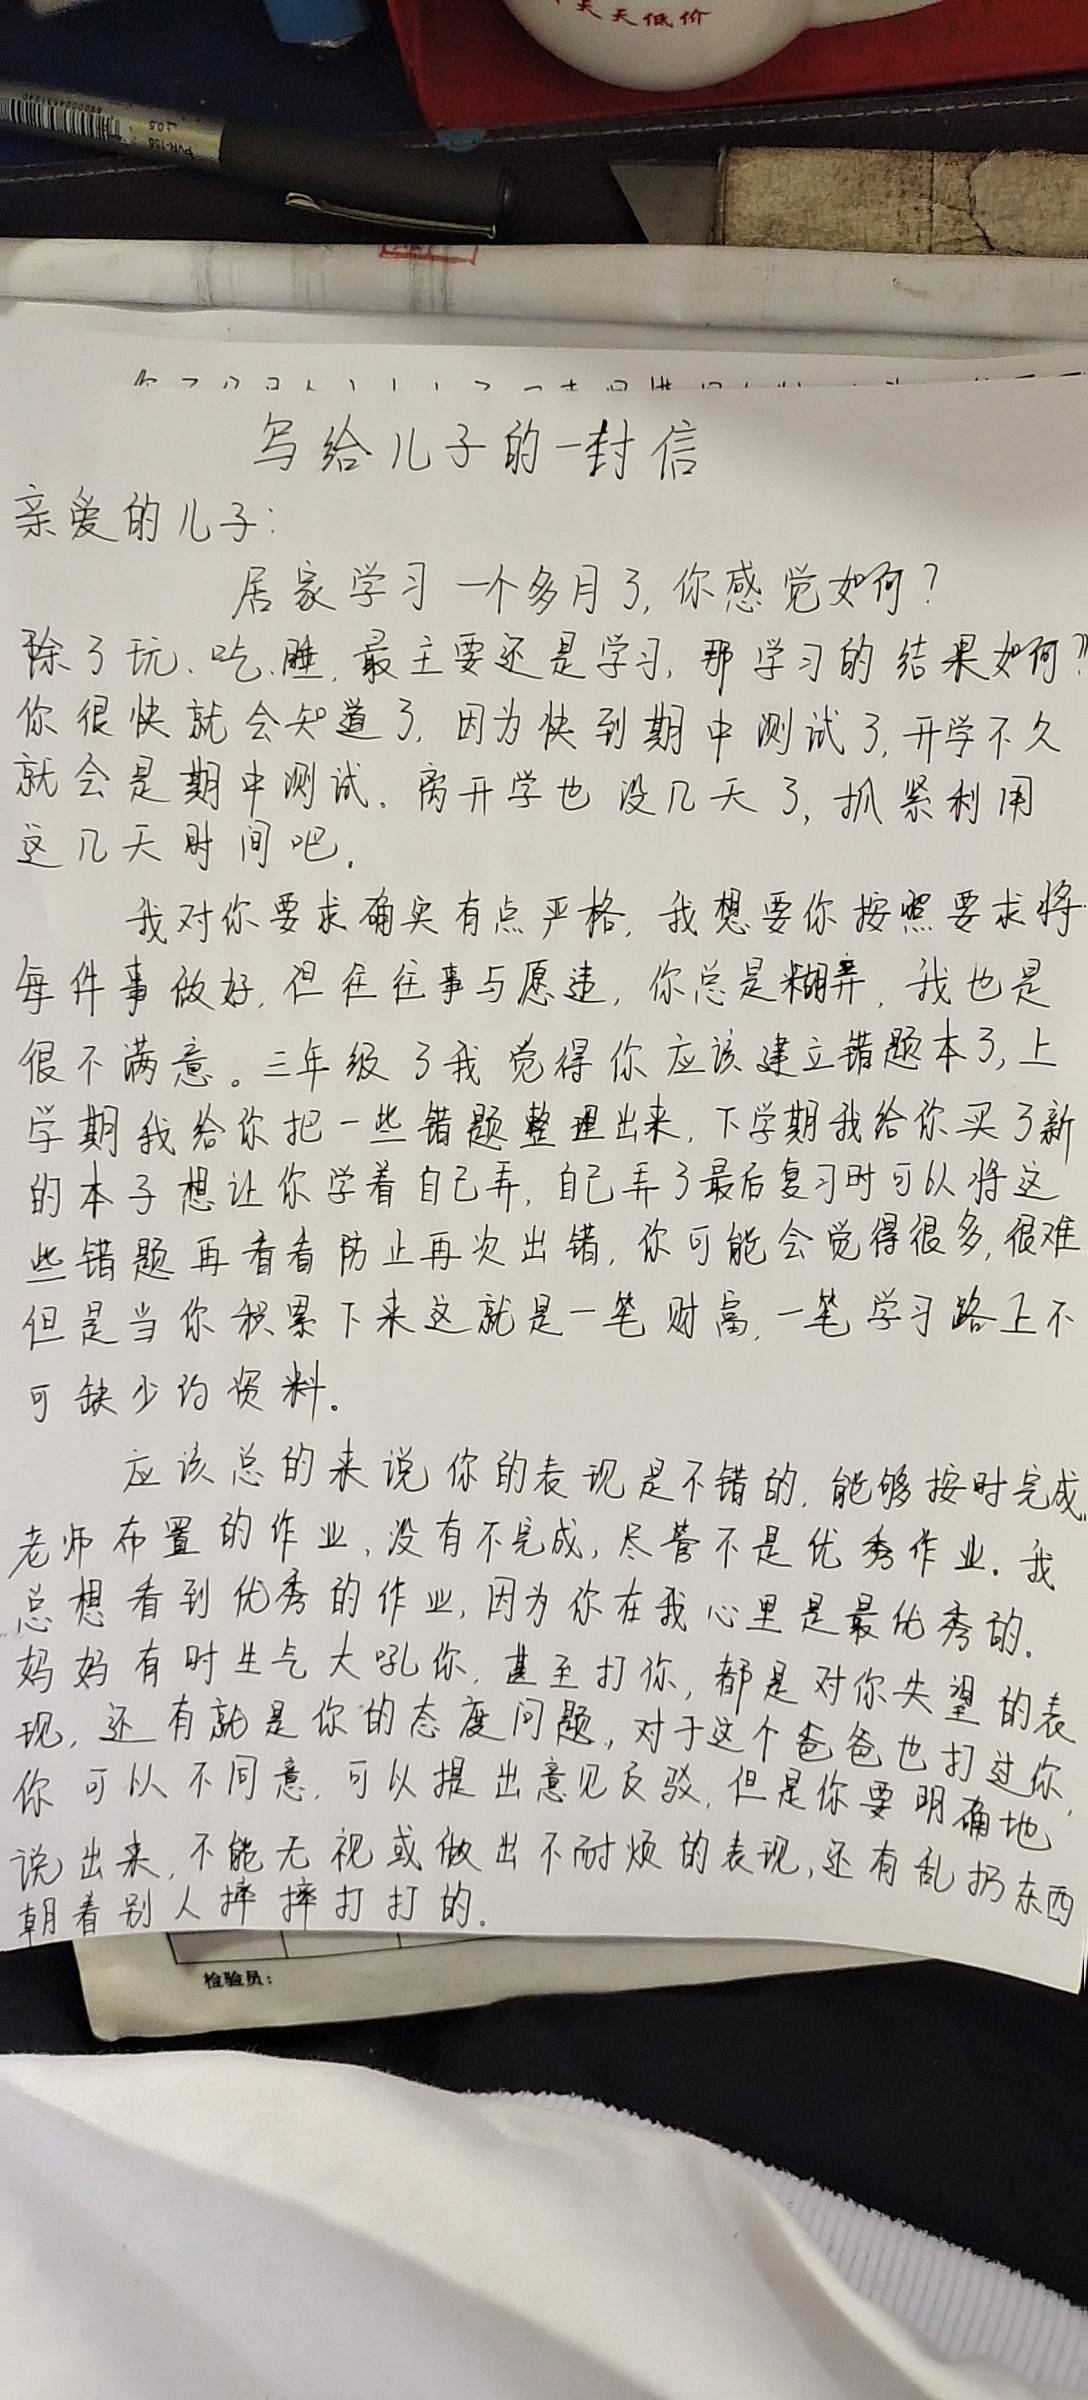 天天低价
写给儿子的一封信
亲爱的儿子：
居家学习一个多月了，你感觉如何？
除了玩、吃、睡，最主要还是学习，那学习的结果如何？
你很快就会知道了，因为快到期中测试了，开学不久
就会是期中测试。离开学也没几天了，抓紧利用
这几天时间吧。
我对你要求确实有点严格，我想要你按照要求将
每件事做好，但往往事与愿违，你总是糊弄，我也是
很不满意。三年级了我觉得你应该建立错题本了，上
学期我给你把一些错题整理出来，下学期我给你买了新
的本子想让你学着自己弄，自己弄了最后复习时可以将这
些错题再看看防止再次出错，你可能会觉得很多，很难
但是当你积累下来这就是一笔财富，一笔学习路上不
可缺少的资料。
应该总的来说你的表现是不错的，能够按时完成
老师布置的作业，没有不完成，尽管不是优秀作业。我
总想看到优秀的作业，因为你在我心里是最优秀的。
妈妈有时生气大吼你，甚至打你，都是对你失望的表
现，还有就是你的态度问题，对于这个爸爸也打过你，
你可以不同意，可以提出意见反驳，但是你要明确地
说出来，不能无视或做出不耐烦的表现，还有乱扔东西
朝着别人摔摔打打的。
检验员：